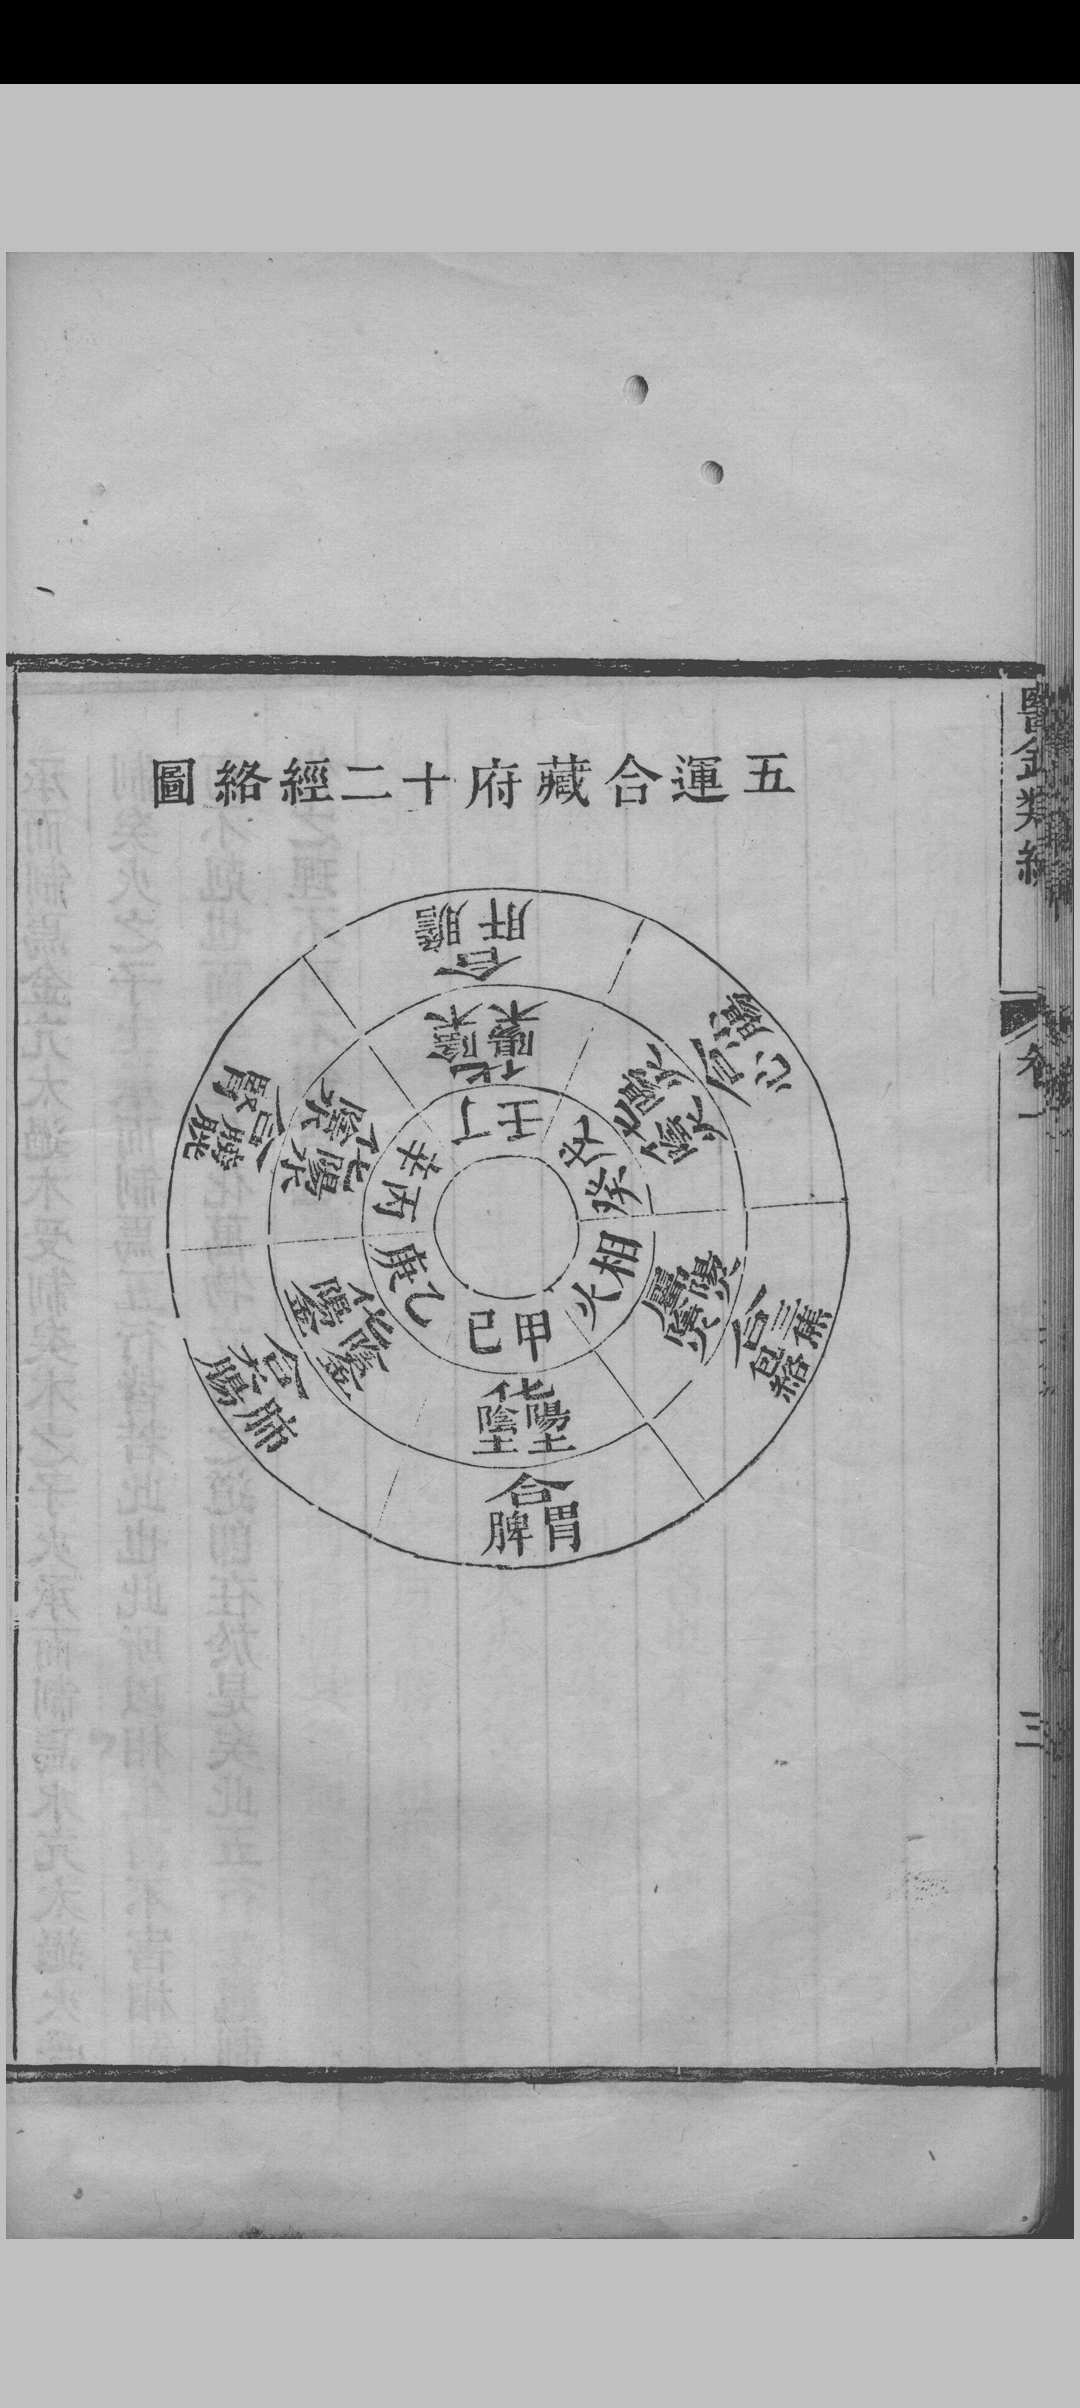 五運合藏府十二經絡圖
甲己
化陽土陰土
合胃脾
乙庚
化陰金陽金
合肺大腸
丙辛
化陽水陰水
合膀胱腎
丁壬
化陰木陽木
合肝膽
戊癸
化陽火陰火
合小腸心
相火
陽火陰火
合三焦包絡
卷一
三